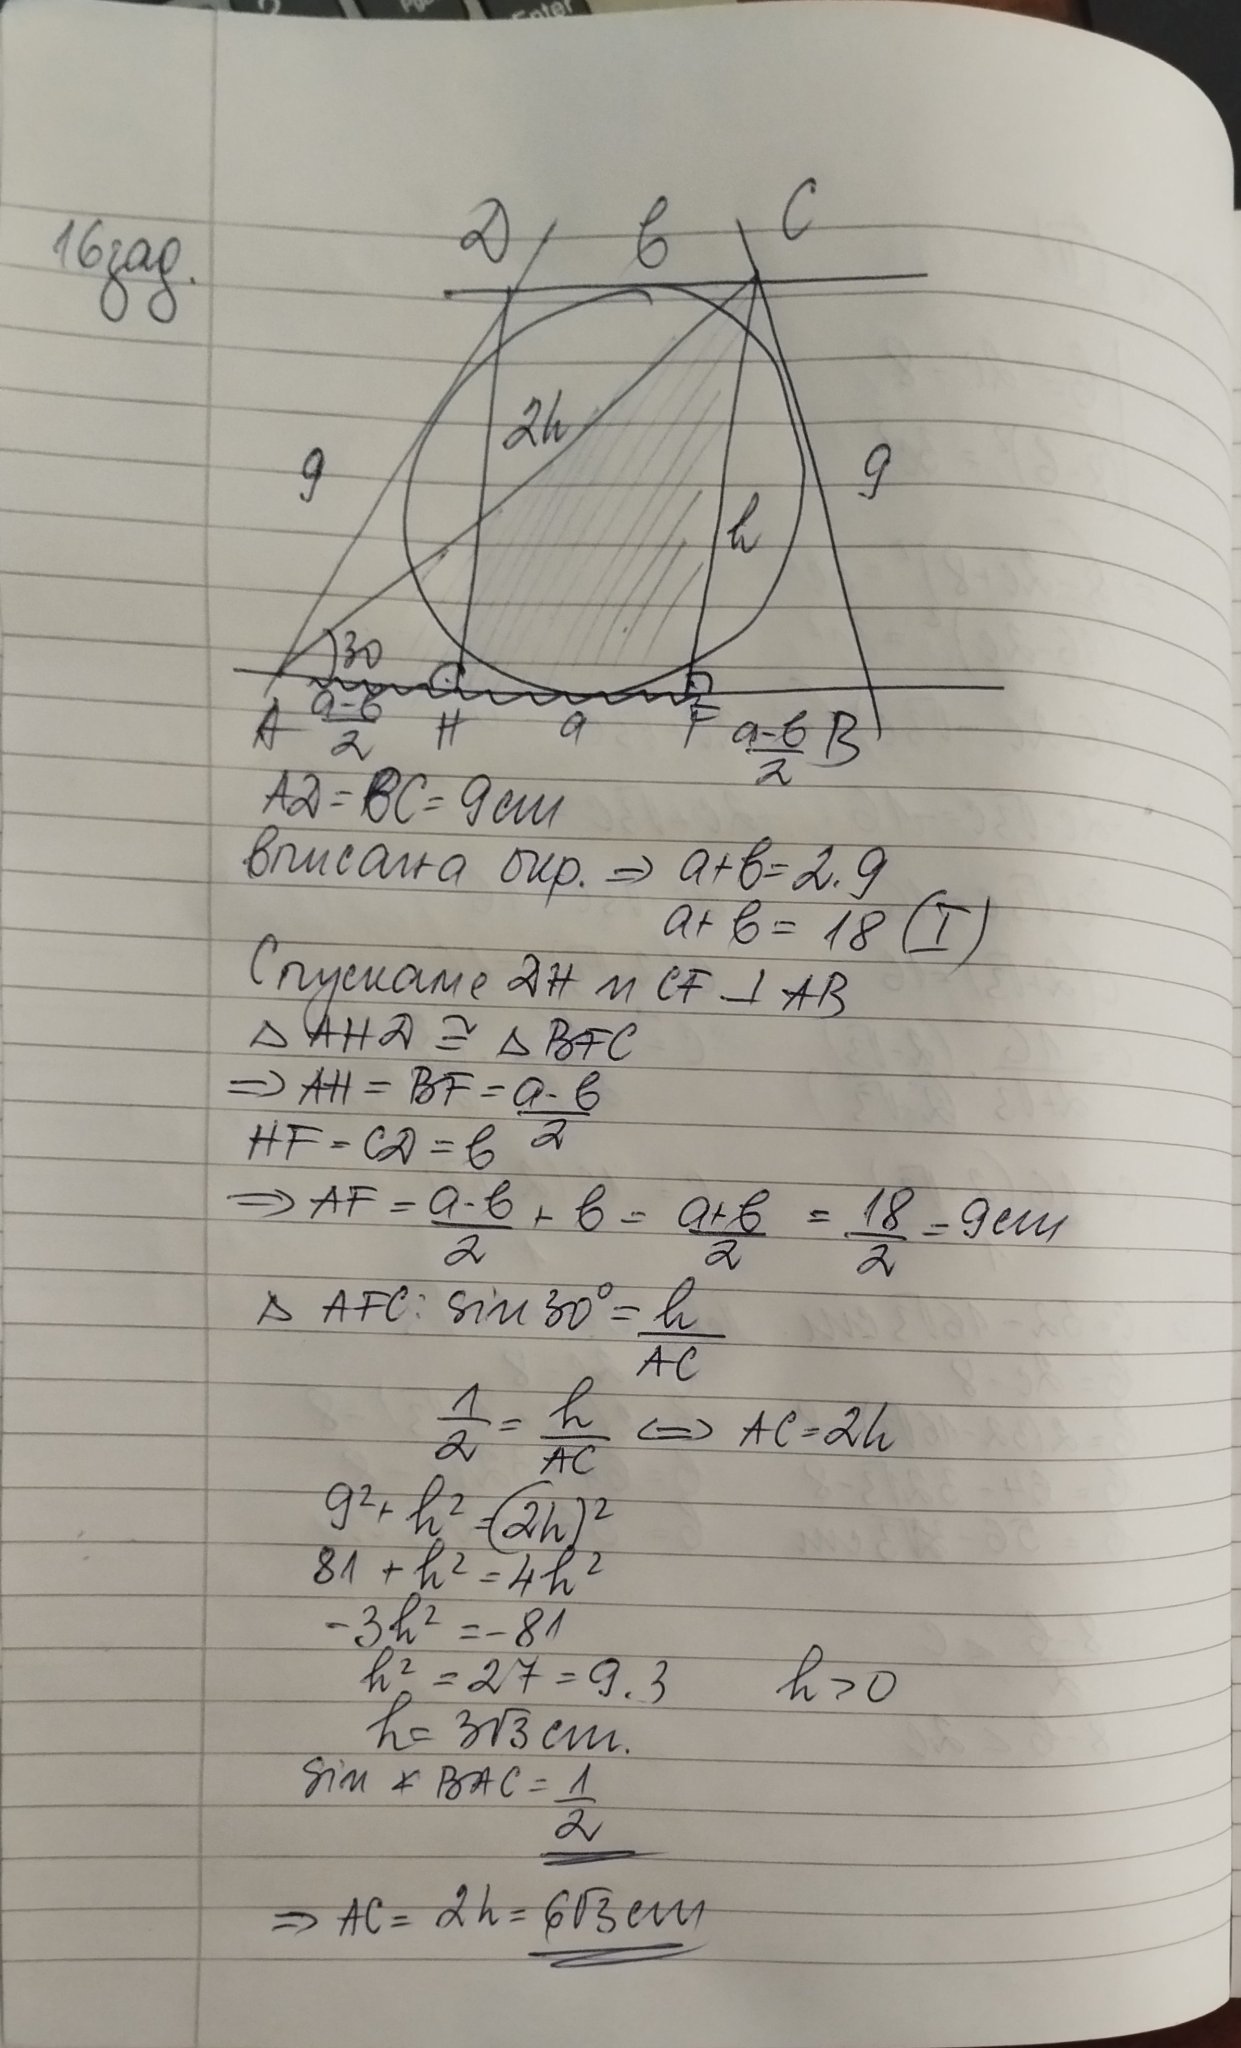 16 зад.
D в C
9 2h 9
h
30
A a-в/2 H a F a-в/2 B
AD = BC = 9cm
Вписана окр. => a+в = 2.9
a+в = 18 (I)
Спускаме DH и CF ⊥ AB
△ AHD ≅ △ BFC
=> AH = BF = a-в/2
HF = CD = в
=> AF = a-в/2 + в = a+в/2 = 18/2 = 9cm
△ AFC: sin 30° = h/AC
1/2 = h/AC <=> AC = 2h
9² + h² = (2h)²
81 + h² = 4h²
-3h² = -81
h² = 27 = 9.3 h > 0
h = 3√3 cm.
sin ∢ BAC = 1/2
=> AC = 2h = 6√3 cm